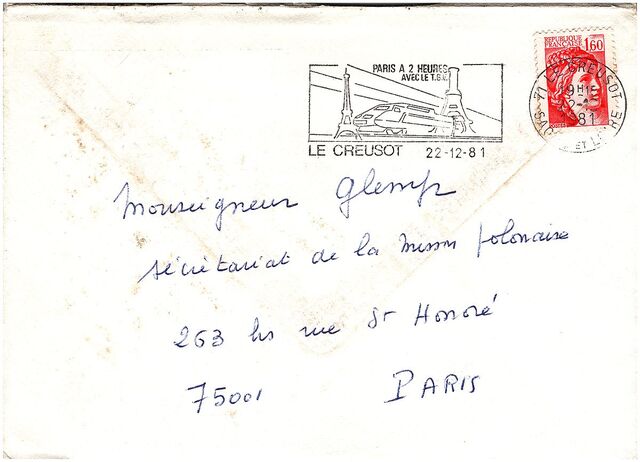 PARIS A 2 HEURES
AVEC LE T.G.V.
LE CREUSOT 22-12-81
REPUBLIQUE
FRANÇAISE 1,60
71 LE CREUSOT
19H15
81
ET LOIRE
Monseigneur Glemp
sécrétariat de la mission polonaise
263 bis rue St Honoré
75001 PARIS